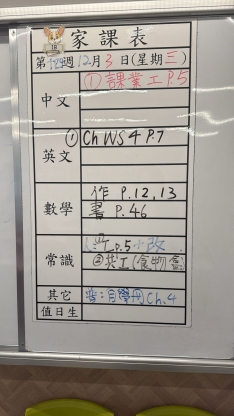 家課表
第 週12月3日(星期三)
中文
① 課業工P.5
英文
① Ch WS 4 P.7
數學
作 P.12,13
書 P.46
常識
P.5小改
②共工(食物盒)
其它
Ch.4
值日生